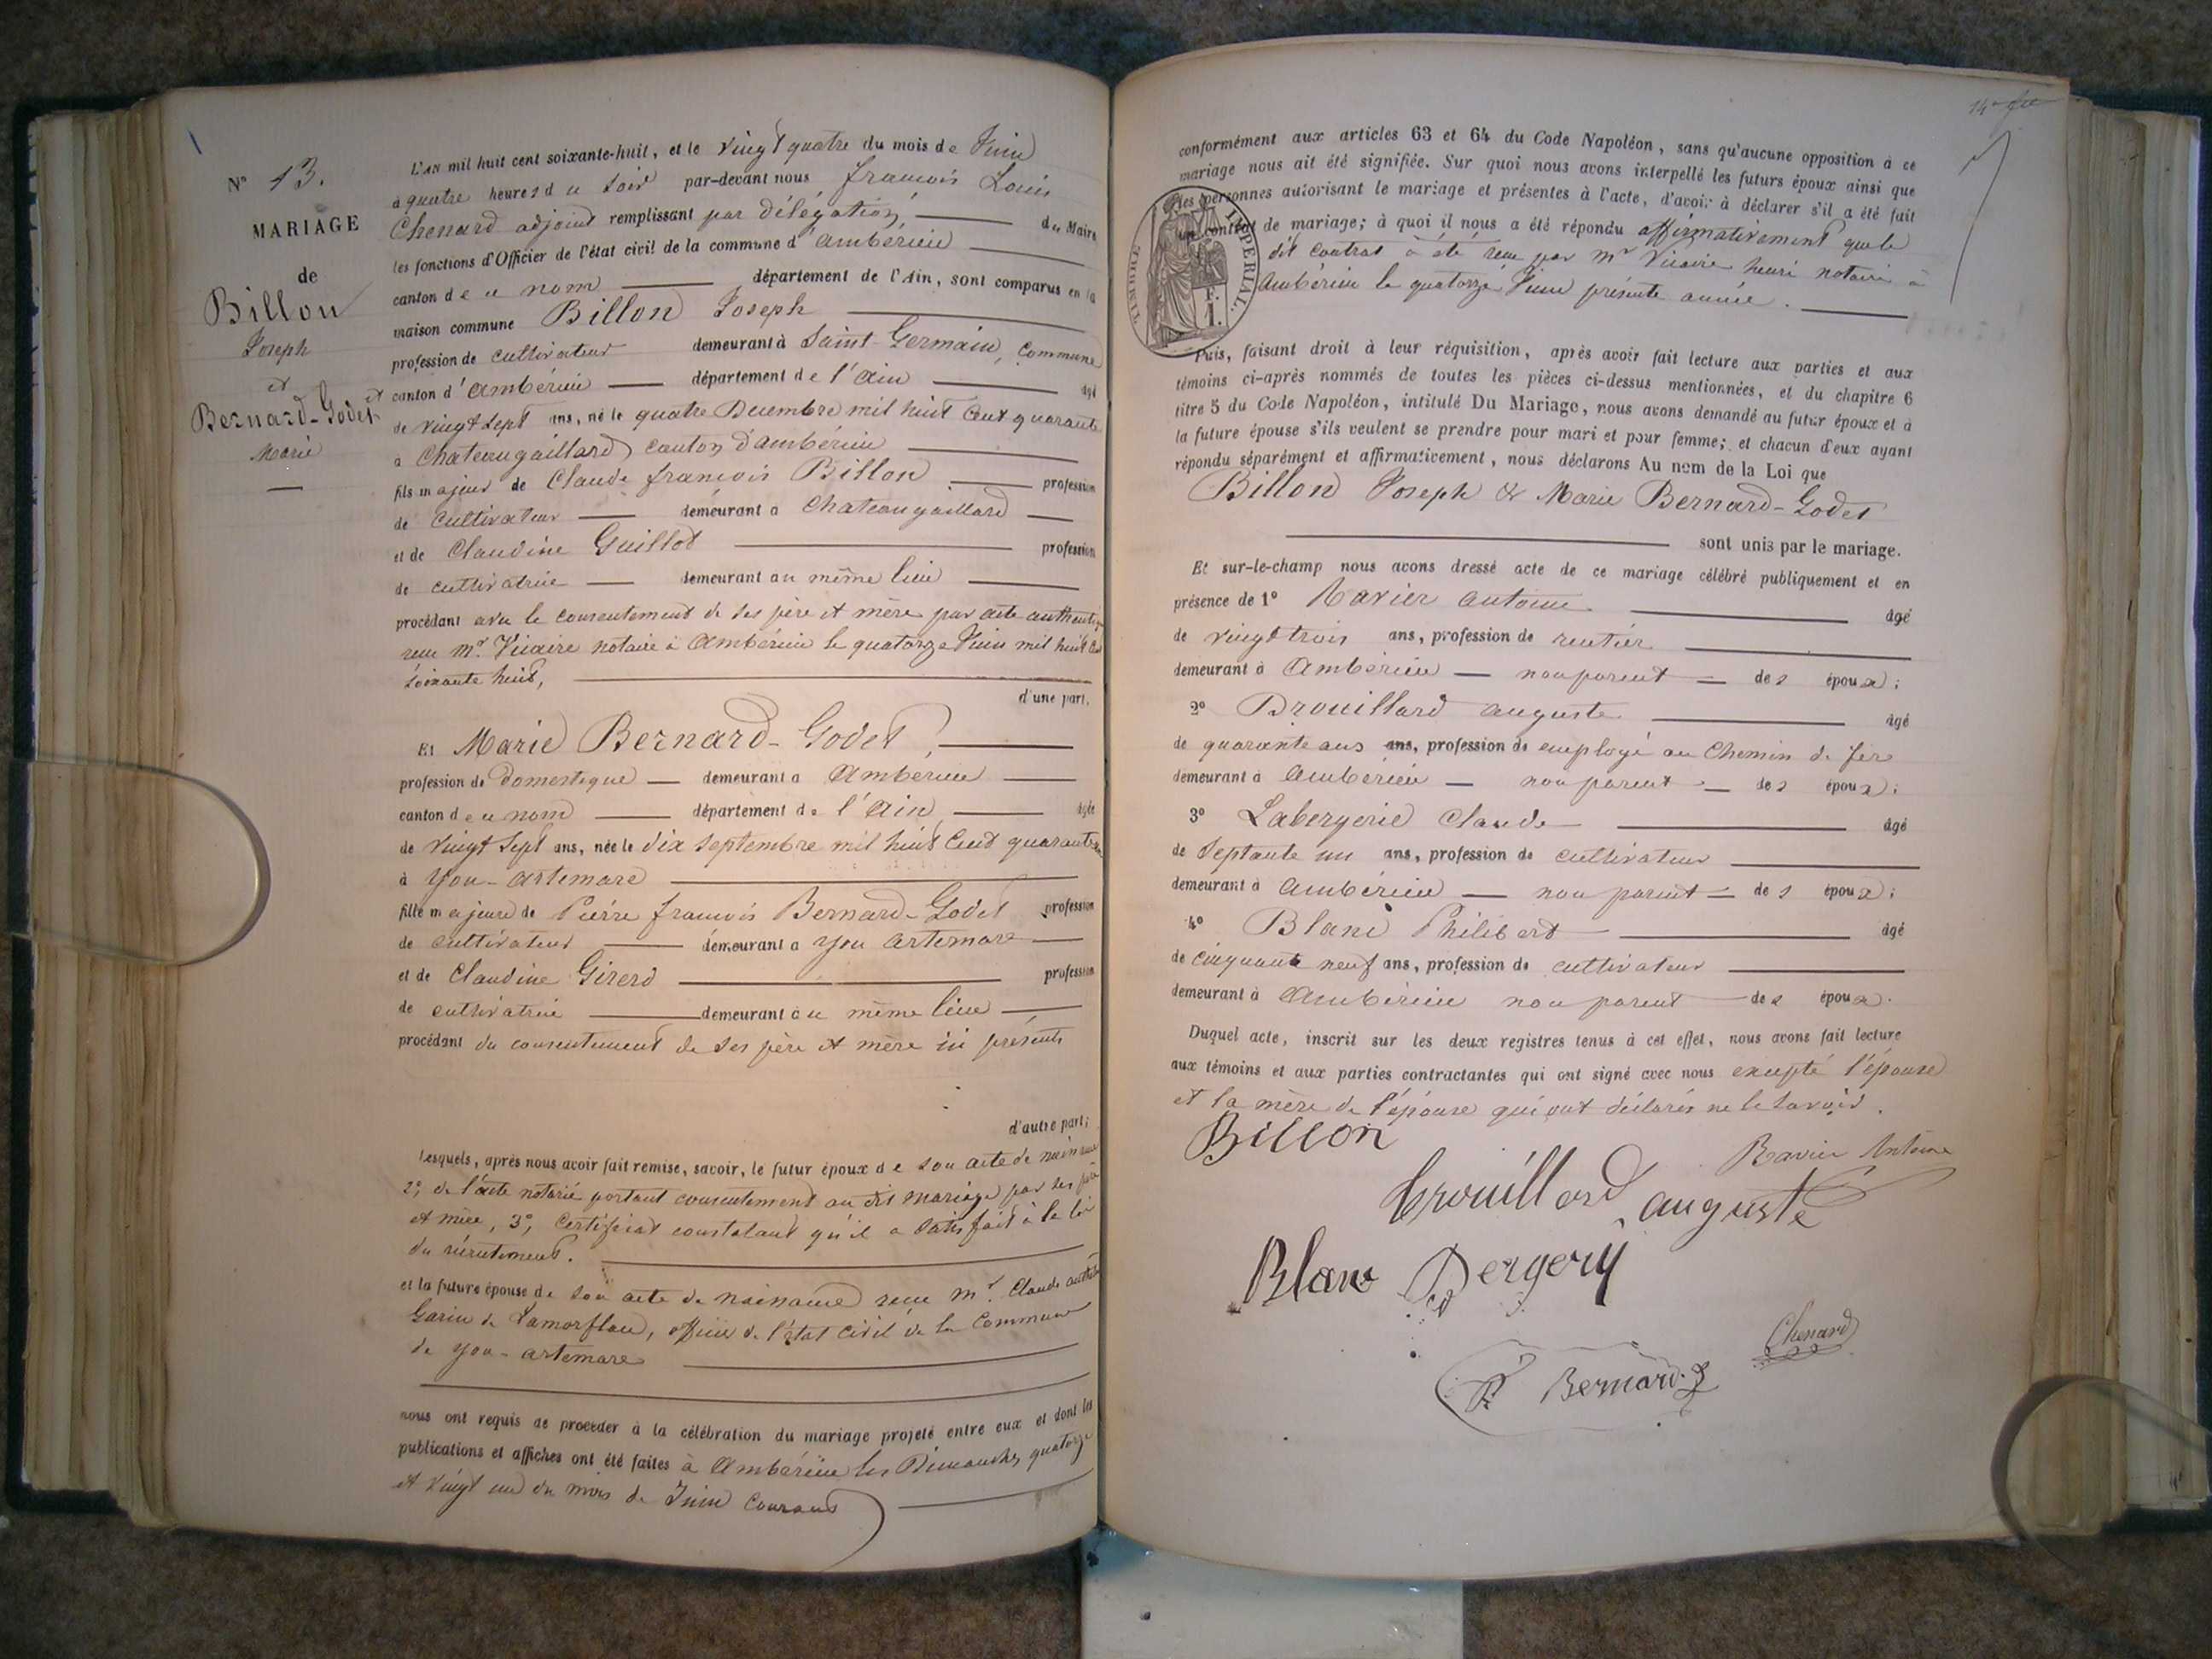 N° 13.
MARIAGE
de
Billon
Joseph
et
Bernard-Godet
Marie
L'AN mil huit cent soixante-huit, et le vingt quatre du mois de Juin
à quatre heures du soir par-devant nous françois Louis
Chenard adjoint remplissant par délégation, du Maire
les fonctions d'Officier de l'état civil de la commune d'ambérieu
canton de ce nom département de l'Ain, sont comparus en la
maison commune Billon Joseph
profession de cultivateur demeurant à Saint-Germain, Commune
et canton d'ambérieu département de l'ain âgé
de vingt sept ans, né le quatre Décembre mil huit Cent quarante
à Chateaugaillard canton d'ambérieu
fils majeur de Claude françois Billon profession
de cultivateur demeurant à Chateaugaillard
et de Claudine Guillot profession
de cultivatrice demeurant au même lieu
procédant avec le consentement de ses père et mère par acte authentique
reçu mr. Vicaire notaire à Ambérieu le quatorze Juin mil huit cent
soixante huit,
d'une part.
Et Marie Bernard-Godet,
profession de domestique demeurant à Ambérieu
canton de ce nom département de l'ain âgée
de vingt sept ans, née le dix septembre mil huit Cent quarante
à Yon-artemare
fille majeure de Pierre françois Bernard-Godet profession
de cultivateur demeurant à yon artemare
et de Claudine Girerd profession
de cultivatrice demeurant au même lieu
procédant du consentement de ses père et mère ici présents
d'autre part;
Lesquels, après nous avoir fait remise, savoir, le futur époux de son acte de naissance
2°, de l'acte notarié portant consentement au dit mariage par ses père
et mère, 3°, Certificat constatant qu'il a satisfait à la loi
du recrutement.
et la future épouse de son acte de naissance reçu mr. Claude
Garin de Lamorflan, officier de l'état civil de la Commune
de yon-artemare
nous ont requis de procéder à la célébration du mariage projeté entre eux et dont les
publications et affiches ont été faites à Ambérieu les Dimanches quatorze
et vingt un du mois de Juin courant
conformément aux articles 63 et 64 du Code Napoléon, sans qu'aucune opposition à ce
mariage nous ait été signifiée. Sur quoi nous avons interpellé les futurs époux ainsi que
les personnes autorisant le mariage et présentes à l'acte, d'avoir à déclarer s'il a été fait
un contrat de mariage; à quoi il nous a été répondu affirmativement que le
dit contrat à été reçu par mr Vicaire henri notaire à
Ambérieu le quatorze Juin présente année.
TIMBRE IMPERIAL.
1 F.
Puis, faisant droit à leur réquisition, après avoir fait lecture aux parties et aux
témoins ci-après nommés de toutes les pièces ci-dessus mentionnées, et du chapitre 6
titre 5 du Code Napoléon, intitulé Du Mariage, nous avons demandé au futur époux et à
la future épouse s'ils veulent se prendre pour mari et pour femme; et chacun d'eux ayant
répondu séparément et affirmativement, nous déclarons Au nom de la Loi que
Billon Joseph & Marie Bernard-Godet
sont unis par le mariage.
Et sur-le-champ nous avons dressé acte de ce mariage célébré publiquement et en
présence de 1° Ravier antoine âgé
de vingt trois ans, profession de rentier
demeurant à Ambérieu non parent des époux;
2° Brouillard auguste âgé
de quarante ans ans, profession de employé au Chemin de fer
demeurant à Ambérieu non parent des époux;
3° Labergerie Claude âgé
de septante un ans, profession de cultivateur
demeurant à ambérieu non parent des époux;
4° Blanc Philibert âgé
de cinquante neuf ans, profession de cultivateur
demeurant à Ambérieu non parent des époux.
Duquel acte, inscrit sur les deux registres tenus à cet effet, nous avons fait lecture
aux témoins et aux parties contractantes qui ont signé avec nous excepté l'épouse
et la mère de l'épouse qui ont déclarés ne le savoir.
Billon
Ravier Antoine
brouillard auguste
Blanc
Chenard
Bernard. G